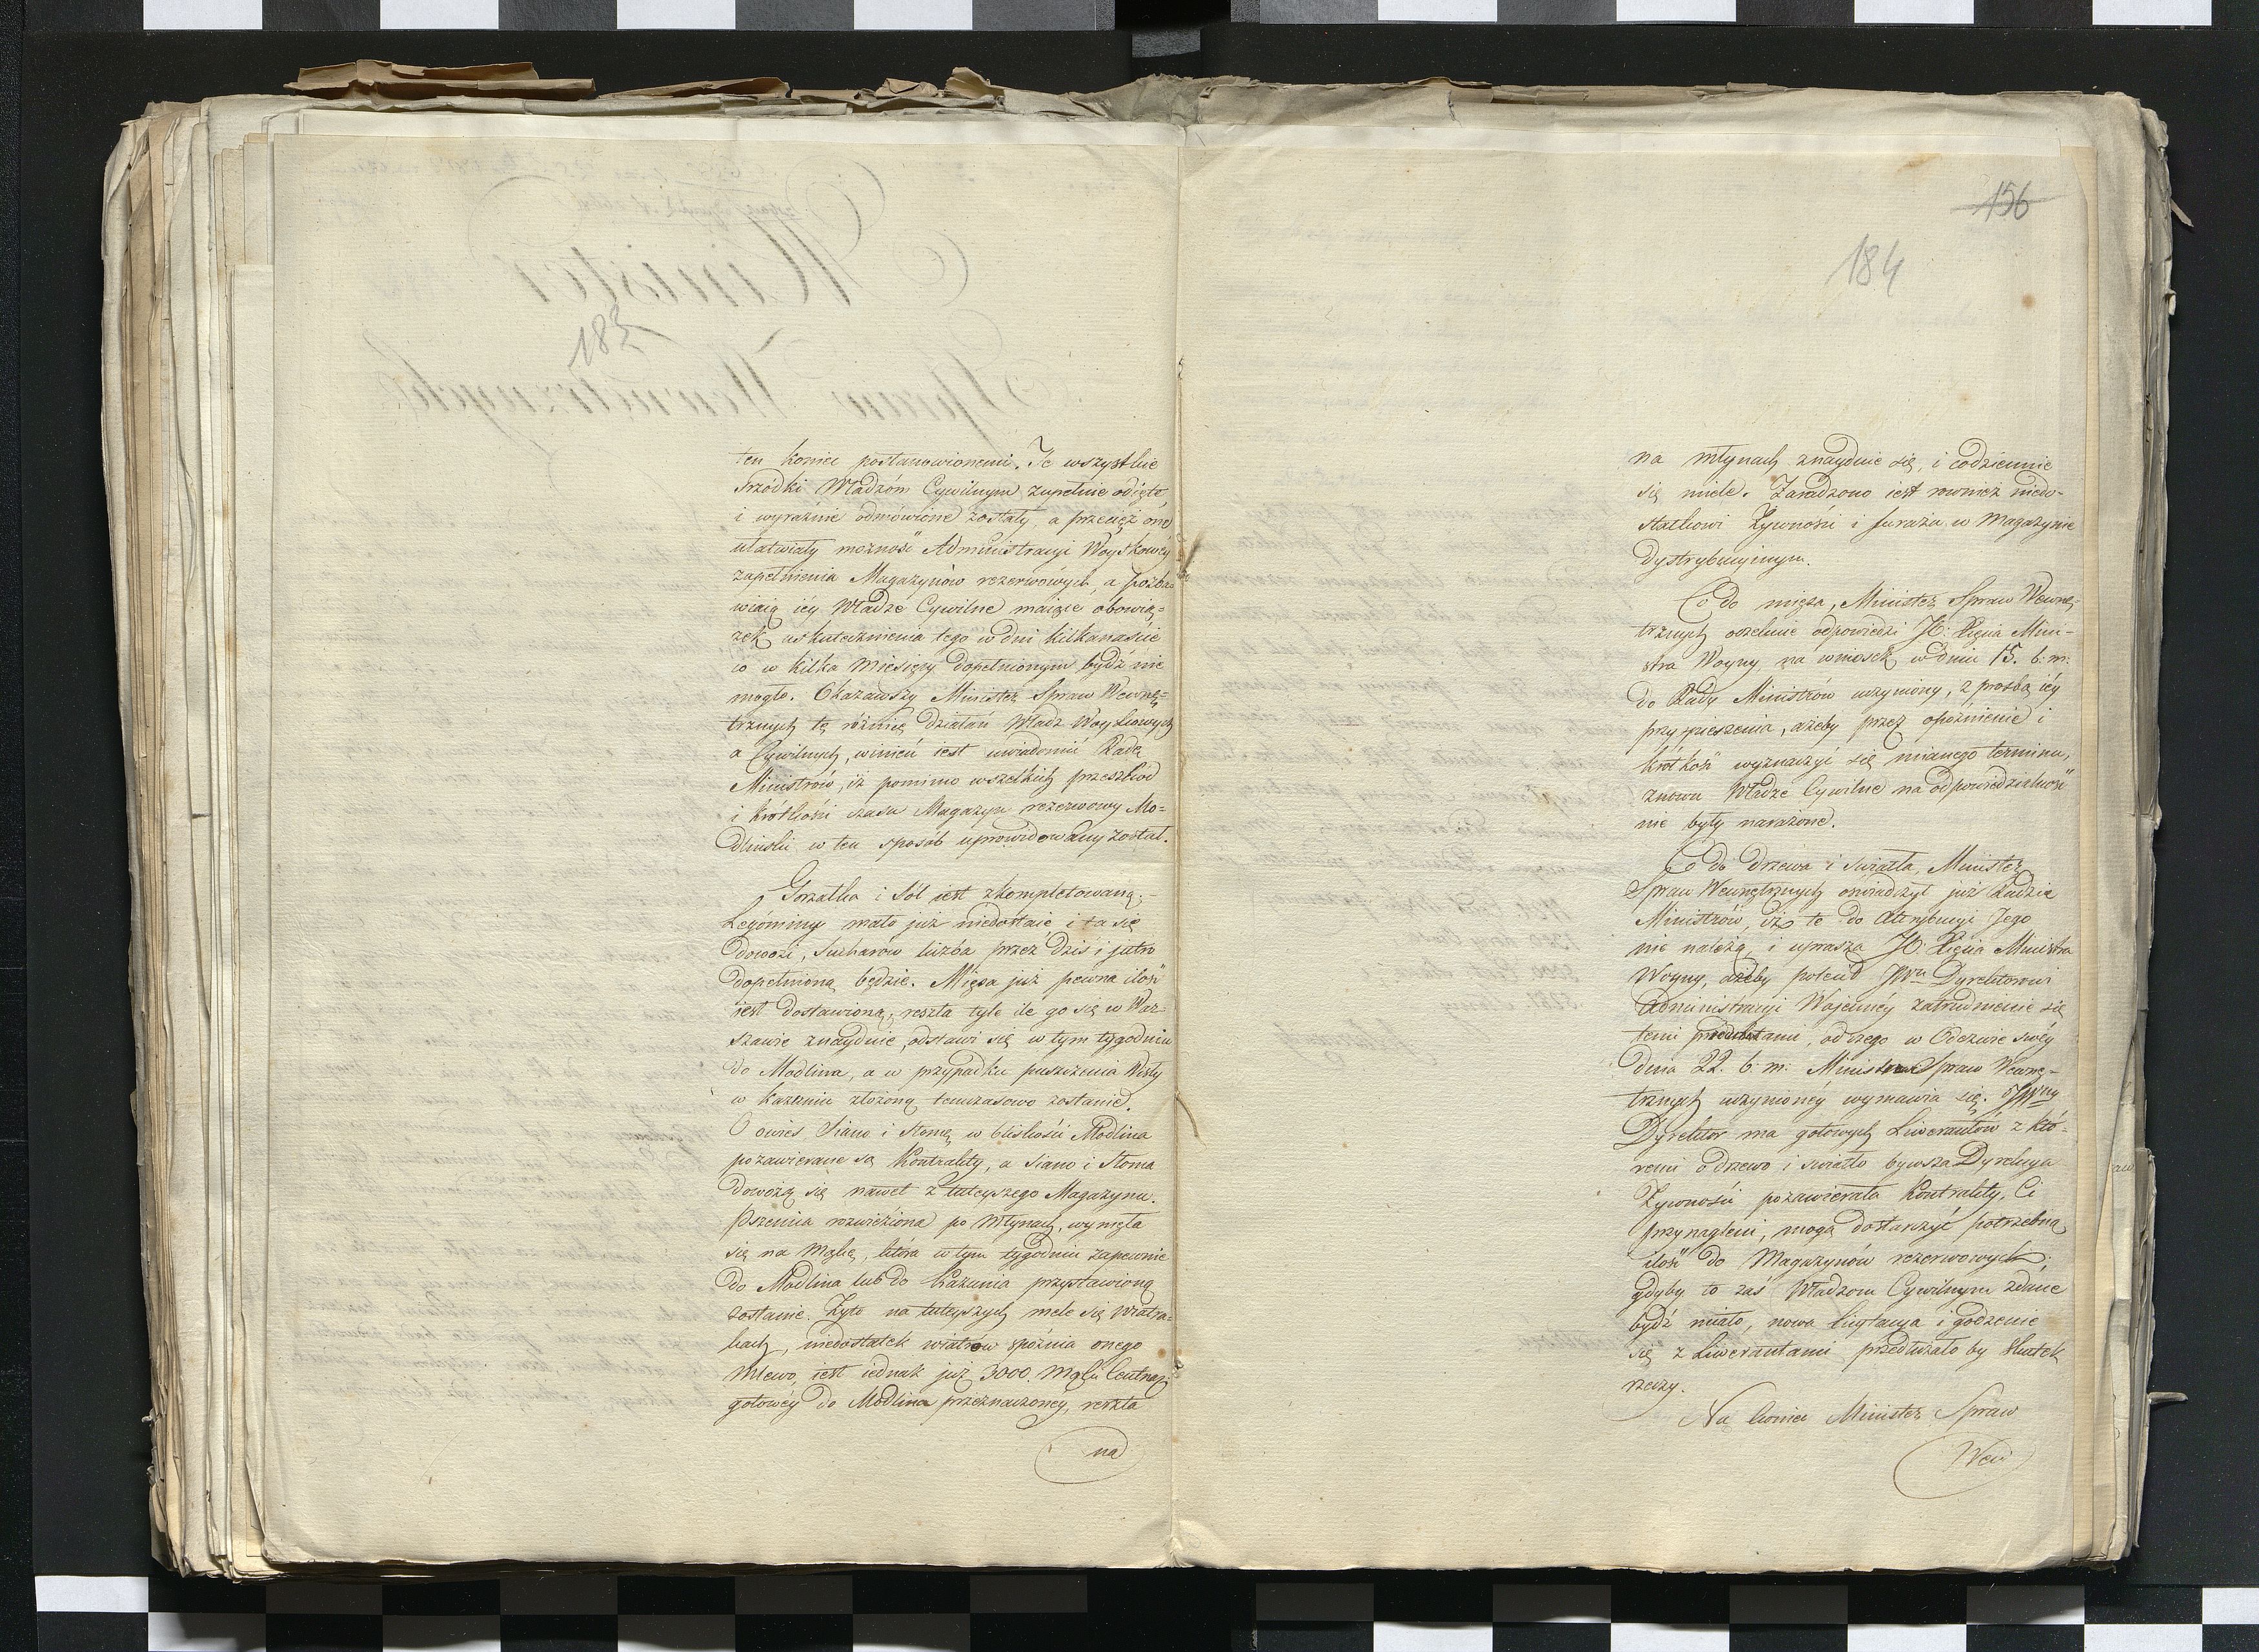 183
ten koniec postanowionemi. Te wszystkie
srzódki Władzom Cywilnym zupełnie odięte,
i wyraźnie odmówione zostały, a przecięż one
ułatwiały możność Administracyi Woyskowéy
zapełnienia Magazynów rezerwowych, a pozba-
wiaią iéy Władze Cywilne maiące obowią-
zek uskutecznienia tego w dni kilkanaście
co w kilka Miesięcy dopełnionym bydź nie
mogło. Okazawszy Minister Spraw Wewnę-
trznych tę różnicę działań Władz Woyskowych
a Cywilnych, winien iest uwiadomić Radę
Ministrów, iż pomimo wszelkich przeszkód
i krótkości czasu Magazyn rezerwowy Mo-
dliński w ten sposób uprowidowany został.
Gorzałka i Sól iest zkompletowaną;-
Legominy mało już niedostaie i ta się
dowozi, Sucharów liczba przez dziś i jutro
dopełnioną będzie. Mięsa już pewna ilość
iest dostawioną, reszta tyle ile go się w War-
szawie znayduie, odstawi się w tym tygodniu
do Modlina, a w przypadku puszczenia Wisły
w Kazuniu złożoną tymczasowo zostanie.
O owies Siano i Słomę w bliskości Modlina
pozawierane są Kontrakty, a Siano i Słoma
dowożą się nawet z tuteyszego Magazynu.
Pszenica rozwieziona po Młynach, wymełła
się na Mąkę, która w tym tygodniu zapewnie
do Modlina lub do Kazunia przystawioną
zostanie. Żyto na tuteyszych mele się Wiatra-
kach, niedostatek wiatrów spóźnia onego
mlewo, iest iednak już 3000 Mąki Centnar:
gotowéy do Modlina przeznaczonéy, reszta
na
156
184
na młynach znayduie się, i codziennie
się miele. Zaradzono iest rownież niedo-
statkowi Żywności i furażu w Magazynie
Dystrybucyinym.
Co do mięsa, Minister Spraw Wewnę-
trznych oczekuie odpowiedzi JO: Xięcia Mini-
stra Woyny na wniosek w dniu 15. b: m:
do Rady Ministrów uczyniony, z prosbą iéy
przyspieszenia, ażeby przez opóźnienie i
krótkość wyznaczyć się mianego terminu,
znowu Władze Cywilne na odpowiedzialność
nie były narażone.
Co do drzewa i swiatła, Minister
Spraw Wewnętrznych oświadczył już Radzie
Ministrów, iż to do Atrybucyi Jego
nie należą, i uprasza JO: Xięcia Ministra
Woyny, ażeby polecił JWu Dyrektorowi
Administracyi Wojennéy zatrudnienie się
temi przedmiotami, od czego w Odezwie swéy
dnia 22. b: m: Ministra Spraw Wewnę-
trznych uczynionéy wymawia się. JWny
Dyrektor ma gotowych Liwerantów z któ-
remi o drzewo i swiatło bywsza Dyrekcya
Żywności pozawierała Kontrakty, Ci
przynagleni, mogą dostarczyć potrzebną
ilość do Magazynów rezerwowych;
gdyby to zaś Władzom Cywilnym zdane
bydź miało, nowa licytacya i godzenie
się z Liwerantami przedłużało by skutek
rzeczy.
Na koniec Minister Spraw
Wew